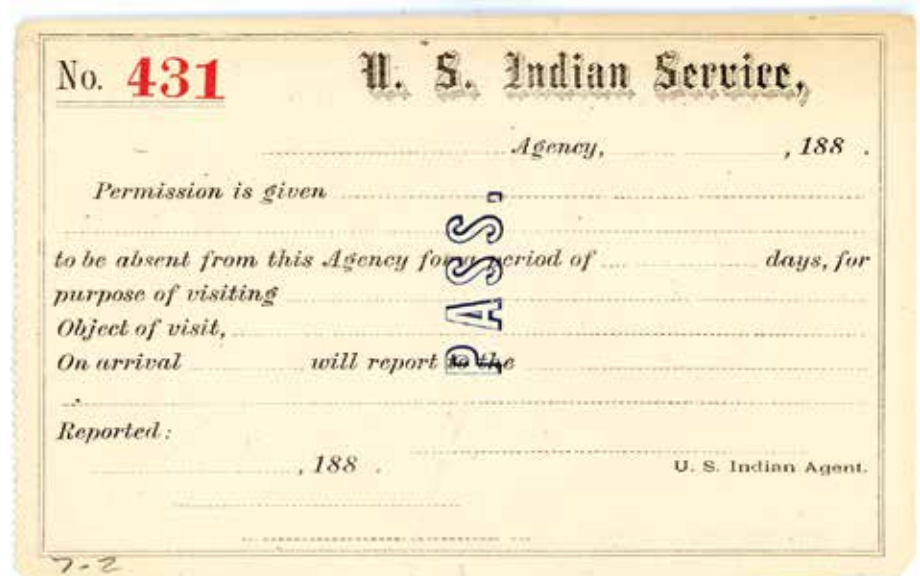 No. 431 U. S. Indian Service,
Agency, , 188 .
Permission is given
to be absent from this Agency for a period of days, for
purpose of visiting
Object of visit,
On arrival will report to the
Reported:
, 188 .
U. S. Indian Agent.
PASS.
7-2